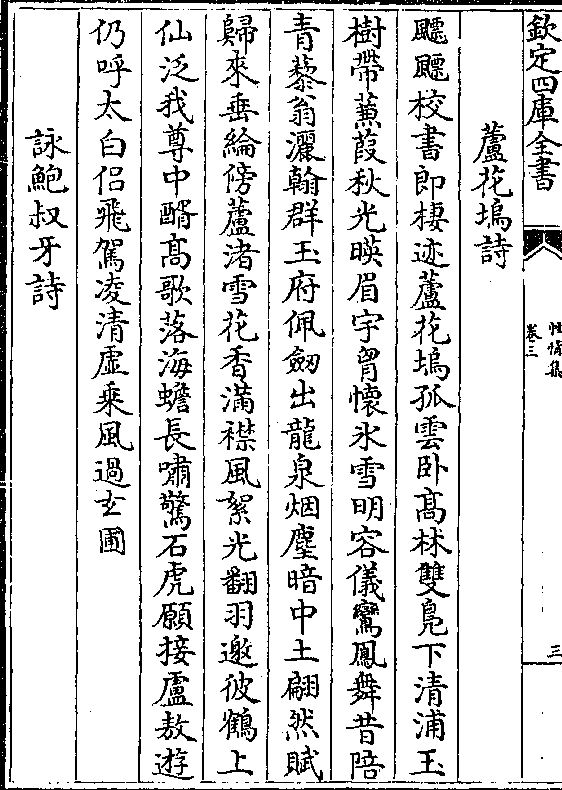 欽定四庫全書
性情集
卷三
三
蘆花塢詩
飄飄校書郎棲迹蘆花塢孤雲卧髙林雙鳬下清浦玉
樹帶蒹葭秋光暎眉宇胷懐氷雪明容儀鸞鳳舞昔陪
青藜翁灑翰群玉府佩劔出龍泉烟塵暗中土翩然賦
歸來垂綸傍蘆渚雪花香滿襟風絮光翻羽邀彼鶴上
仙泛我尊中醑髙歌落海蟾長嘯驚石虎願接盧敖遊
仍呼太白侣飛駕凌清虛乘風過玄圃
詠鮑叔牙詩